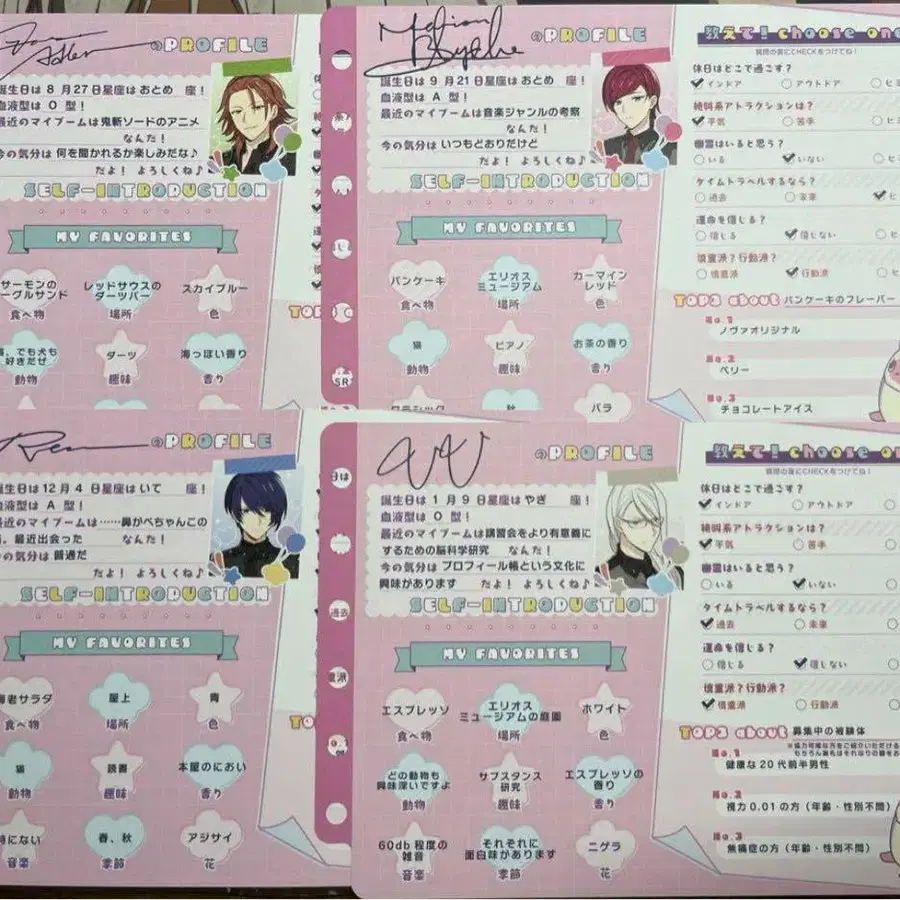 PROFILE
誕生日は8月27日星座はおとめ 座!
血液型は O 型!
最近のマイブームは鬼斬ソードのアニメ
なんだ!
今の気分は何を聞かれるか楽しみだな♪
だよ! よろしくね♪
SELF-INTRODUCTION
MY FAVORITES
サーモンの
ベーグルサンド
食べ物
レッドサウスの
ダーツバー
場所
スカイブルー
色
でも犬も
好きだぜ
動物
ダーツ
趣味
海っぽい香り
香り
Marion
Blythe
のPROFILE
誕生日は9月21日星座はおとめ 座!
血液型は A 型!
最近のマイブームは音楽ジャンルの考察
なんだ!
今の気分はいつもどおりだけど
だよ! よろしくね♪
SELF-INTRODUCTION
MY FAVORITES
パンケーキ
食べ物
エリオス
ミュージアム
場所
カーマイン
レッド
色
猫
動物
ピアノ
趣味
お茶の香り
香り
クラシック
秋
バラ
教えて! choose one
質問の答にCHECKをつけてね!
休日はどこで過ごす?
インドア
アウトドア
ヒミ
絶叫系アトラクションは?
平気
苦手
ヒミ
幽霊はいると思う?
いる
いない
ヒミ
タイムトラベルするなら?
過去
未来
ヒ
運命を信じる?
信じる
信じない
ヒミ
慎重派?行動派?
慎重派
行動派
ヒミ
TOP3 about パンケーキのフレーバー
No.1
ノヴァオリジナル
No.2
ベリー
No.3
チョコレートアイス
SR
Ren
のPROFILE
誕生日は12月4日星座はいて 座!
血液型は A 型!
最近のマイブームは……鼻かべちゃんこの
最近出会った なんだ!
今の気分は普通だ
だよ! よろしくね♪
SELF-INTRODUCTION
MY FAVORITES
海老サラダ
食べ物
屋上
場所
青
色
猫
動物
読書
趣味
本屋のにおい
香り
特にない
音楽
春、秋
季節
アジサイ
花
VV
のPROFILE
誕生日は1月9日星座はやぎ 座!
血液型は O 型!
最近のマイブームは講習会をより有意義に
するための脳科学研究 なんだ!
今の気分はプロフィール帳という文化に
興味があります だよ! よろしくね♪
SELF-INTRODUCTION
MY FAVORITES
エスプレッソ
食べ物
エリオス
ミュージアムの庭園
場所
ホワイト
色
どの動物も
興味深いですよ
動物
サブスタンス
研究
趣味
エスプレッソの
香り
香り
60db程度の
雑音
音楽
それぞれに
面白味があります
季節
ニゲラ
花
教えて! choose on
質問の答にCHECKをつけてね!
休日はどこで過ごす?
インドア
アウトドア
絶叫系アトラクションは?
平気
苦手
幽霊はいると思う?
いる
いない
タイムトラベルするなら?
過去
未来
運命を信じる?
信じる
信じない
慎重派?行動派?
慎重派
行動派
TOP3 about 募集中の被験体
No.1
健康な20代前半男性
No.2
視力0.01の方(年齢・性別不問)
No.3
無痛症の方(年齢・性別不問)